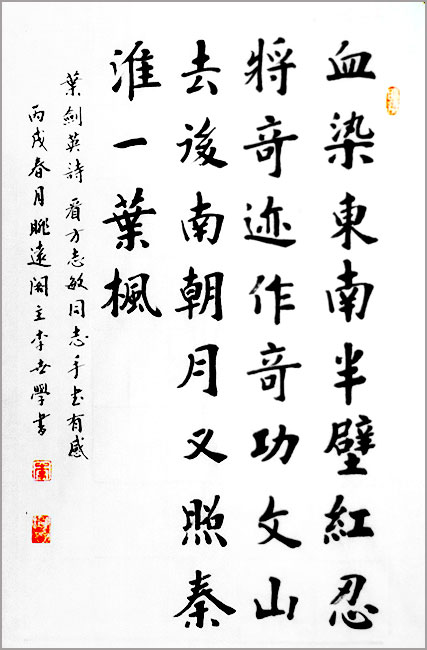 血染東南半壁紅忍
將奇迹作奇功文山
去後南朝月又照秦
淮一葉楓
葉劍英詩看方志敏同志手书有感
丙戌春月眺遠閣主李世學書